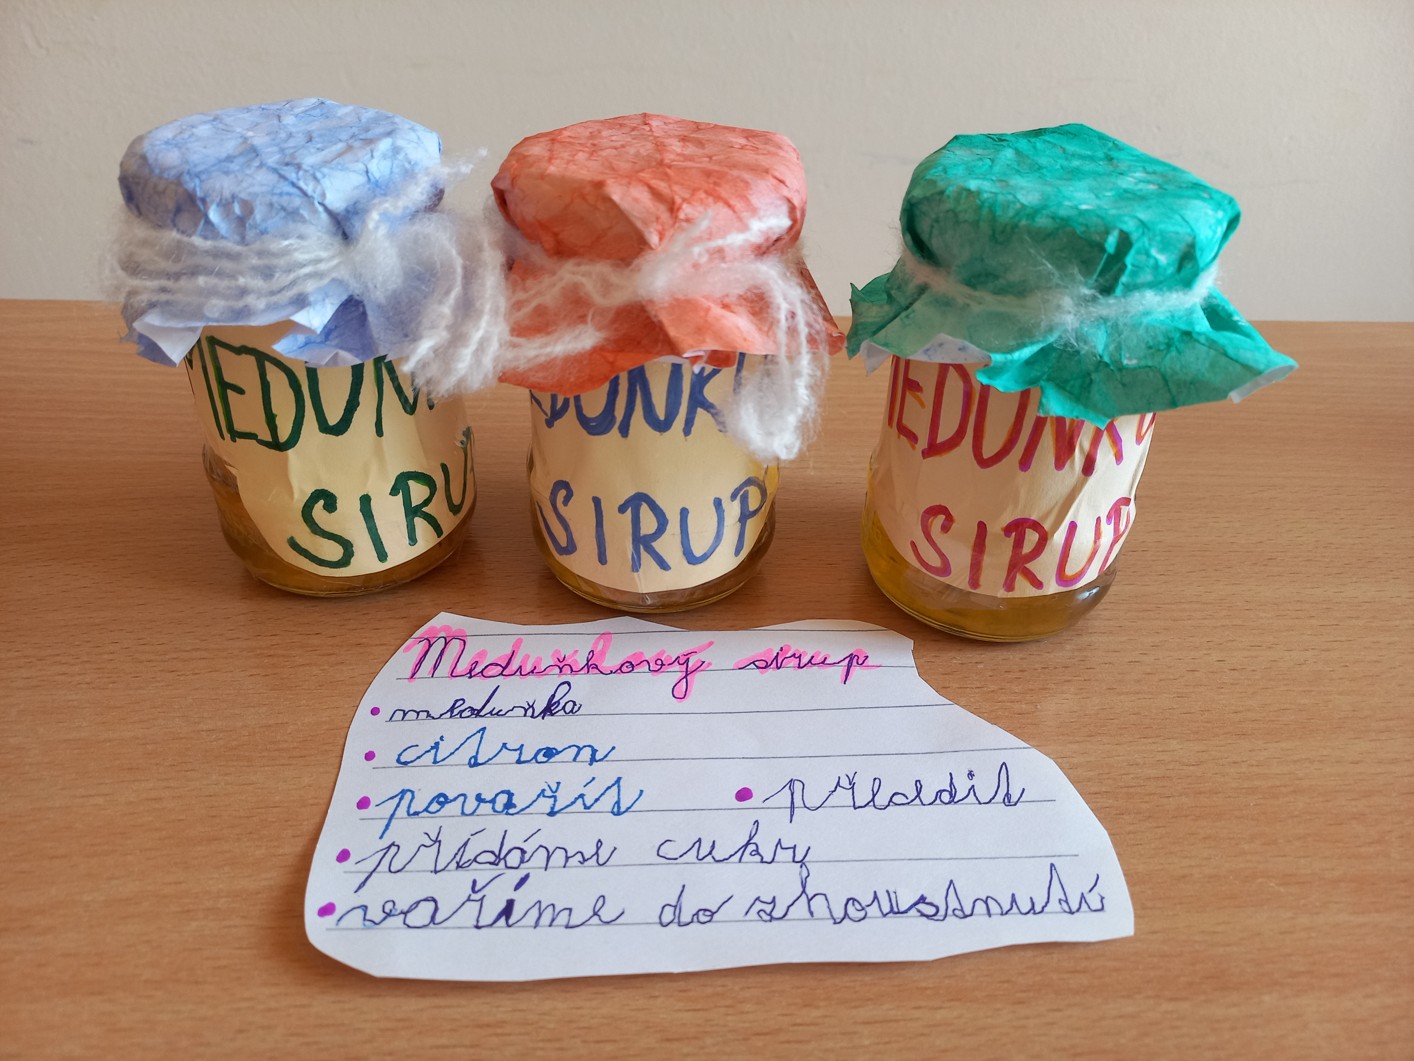 MEDUN
SIRU
EDUNK
SIRUP
MEDUNK
SIRUP
Meduňkový sirup
• meduňka
• citron
• povařit • přecedit
• přidáme cukr
• vaříme do zhoustnutí